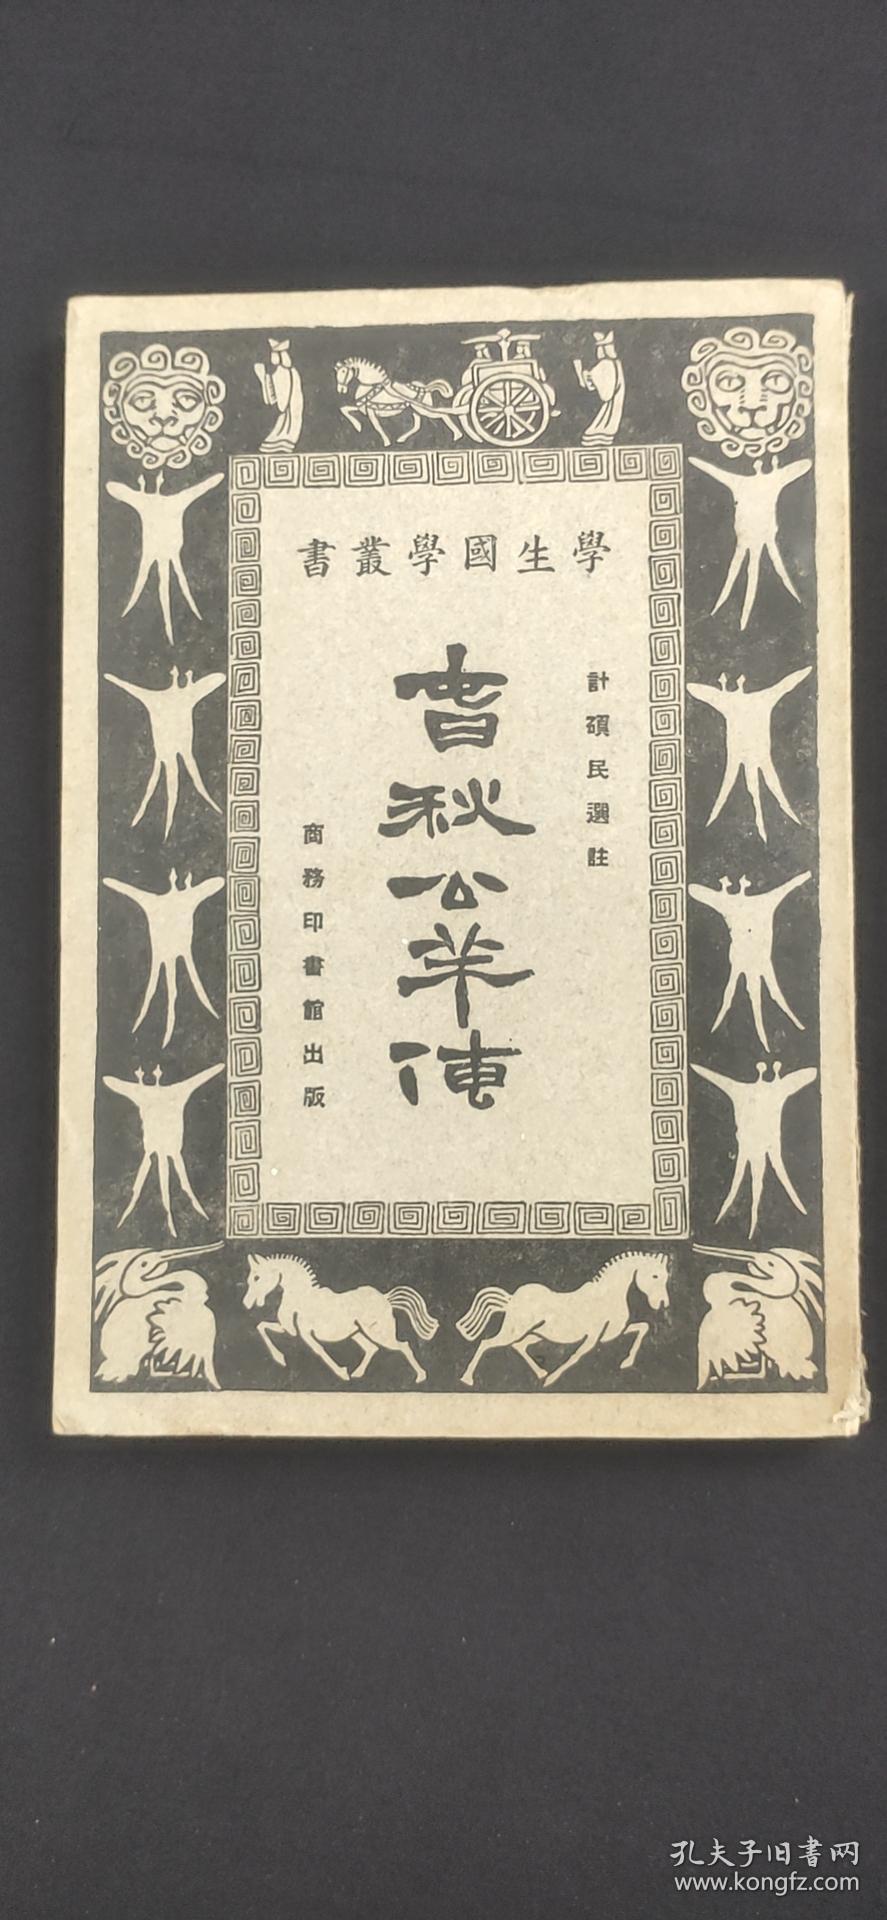 學生國學叢書
計碩民選註
春秋公羊傳
商務印書館出版
孔夫子旧書网
www.kongfz.com